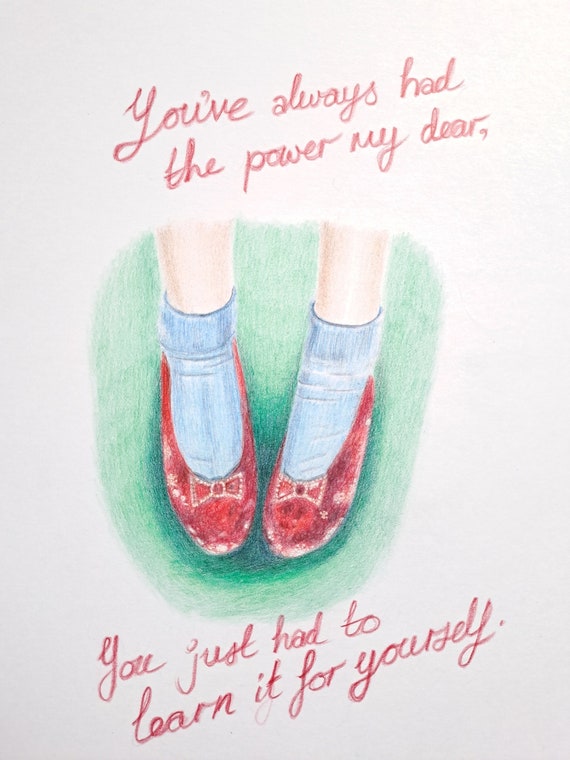 You've always had
the power my dear,
You just had to
learn it for yourself.